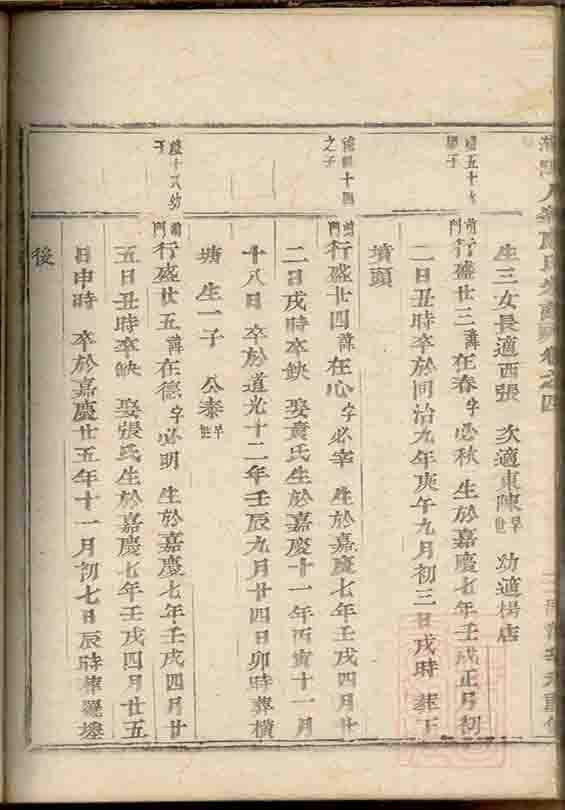 生三女長適西張 次適東陳早世 幼適楊店
盛五十
前門行盛廿三諱在春字必秋 生於嘉慶七年壬戌正月初
二日丑時卒於同治九年庚午九月初三日戌時 葬下
墳頭
十四之子
前門行盛廿四諱在心字必宰 生於嘉慶七年壬戌四月廿
二日戌時卒缺 娶黃氏生於嘉慶十一年丙寅十一月
十八日 卒於道光十二年壬辰九月廿四日卯時葬橫
塘 生一子 公泰早世
盛十八幼子
前門行盛廿五諱在德字必明 生於嘉慶七年壬戌四月廿
五日丑時卒缺 娶張氏生於嘉慶七年壬戌四月廿五
日申時 卒於嘉慶廿五年十一月初七日辰時葬
後